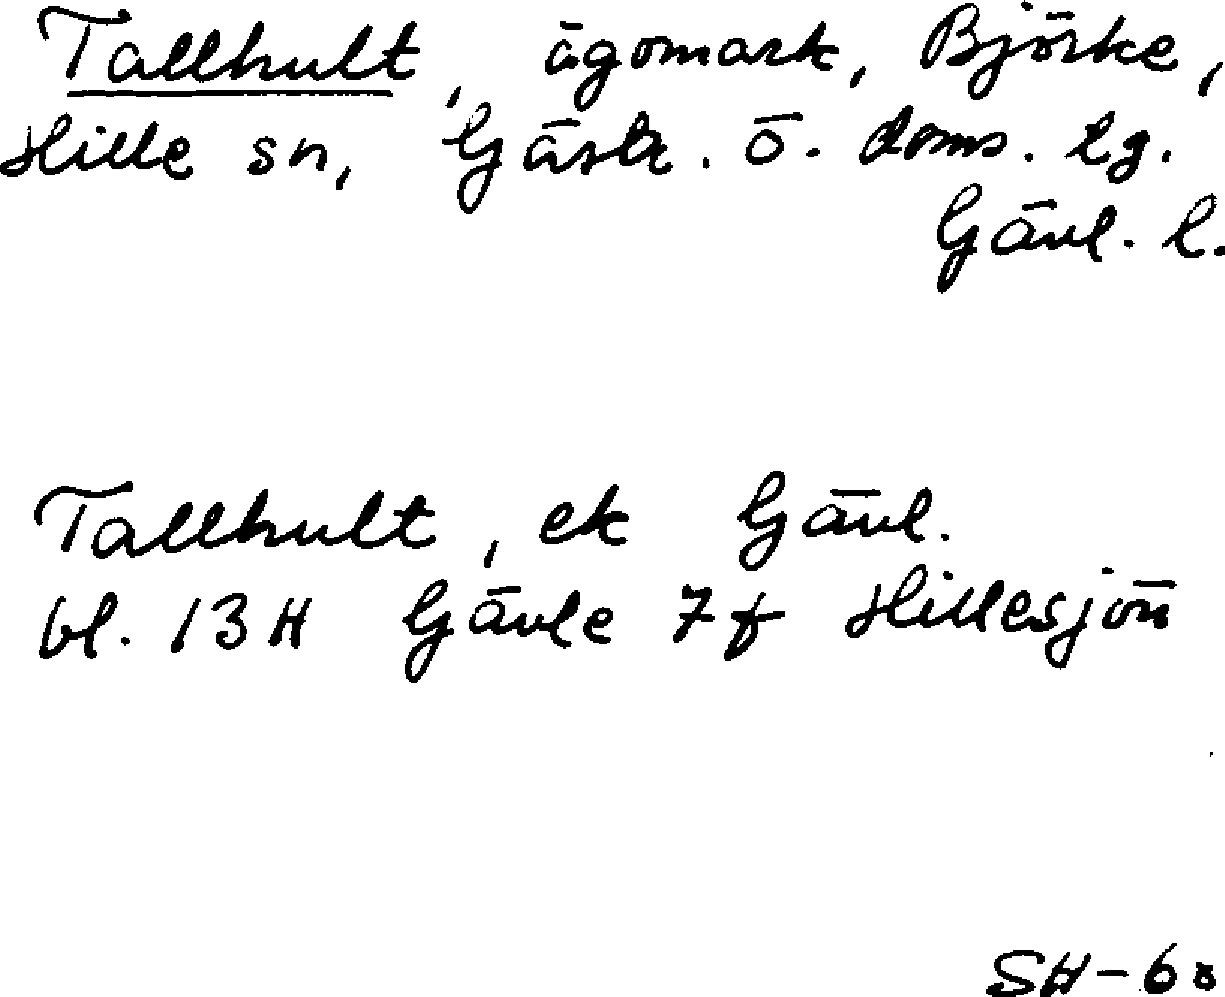 Tallhult, ägomark, Björke,
Hille sn, Gästr. ö. doms. lg.
Gävl. l.
Tallhult, ek Gävl.
bl. 13 H Gävle 7 f Hillesjön